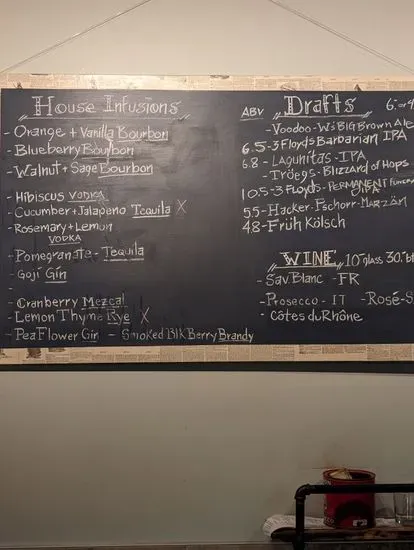 House Infusions
- Orange + Vanilla Bourbon
- Blueberry Bourbon
- Walnut + Sage Bourbon
- Hibiscus VODKA
- Cucumber + Jalapeno Tequila X
- Rosemary + Lemon
VODKA
- Pomegranate - Tequila
- Goji Gin
-
- Cranberry Mezcal
- Lemon Thyme Rye X
- Pea Flower Gin - Smoked Blk Berry Brandy
ABV Drafts
- Voodoo - W's BIG Brown Ale
6.5 - 3 Floyds Barbarian IPA
6.8 - Lagunitas - IPA
- Tröegs - Blizzard of Hops
10.5 - 3 Floyds - PERMANENT
IPA
5.5 - Hacker-Pschorr - Marzän
4.8 - Früh Kölsch
WINE 10 glass
- Sav. Blanc - FR
- Prosecco - IT - Rosé - S
- Côtes du Rhône